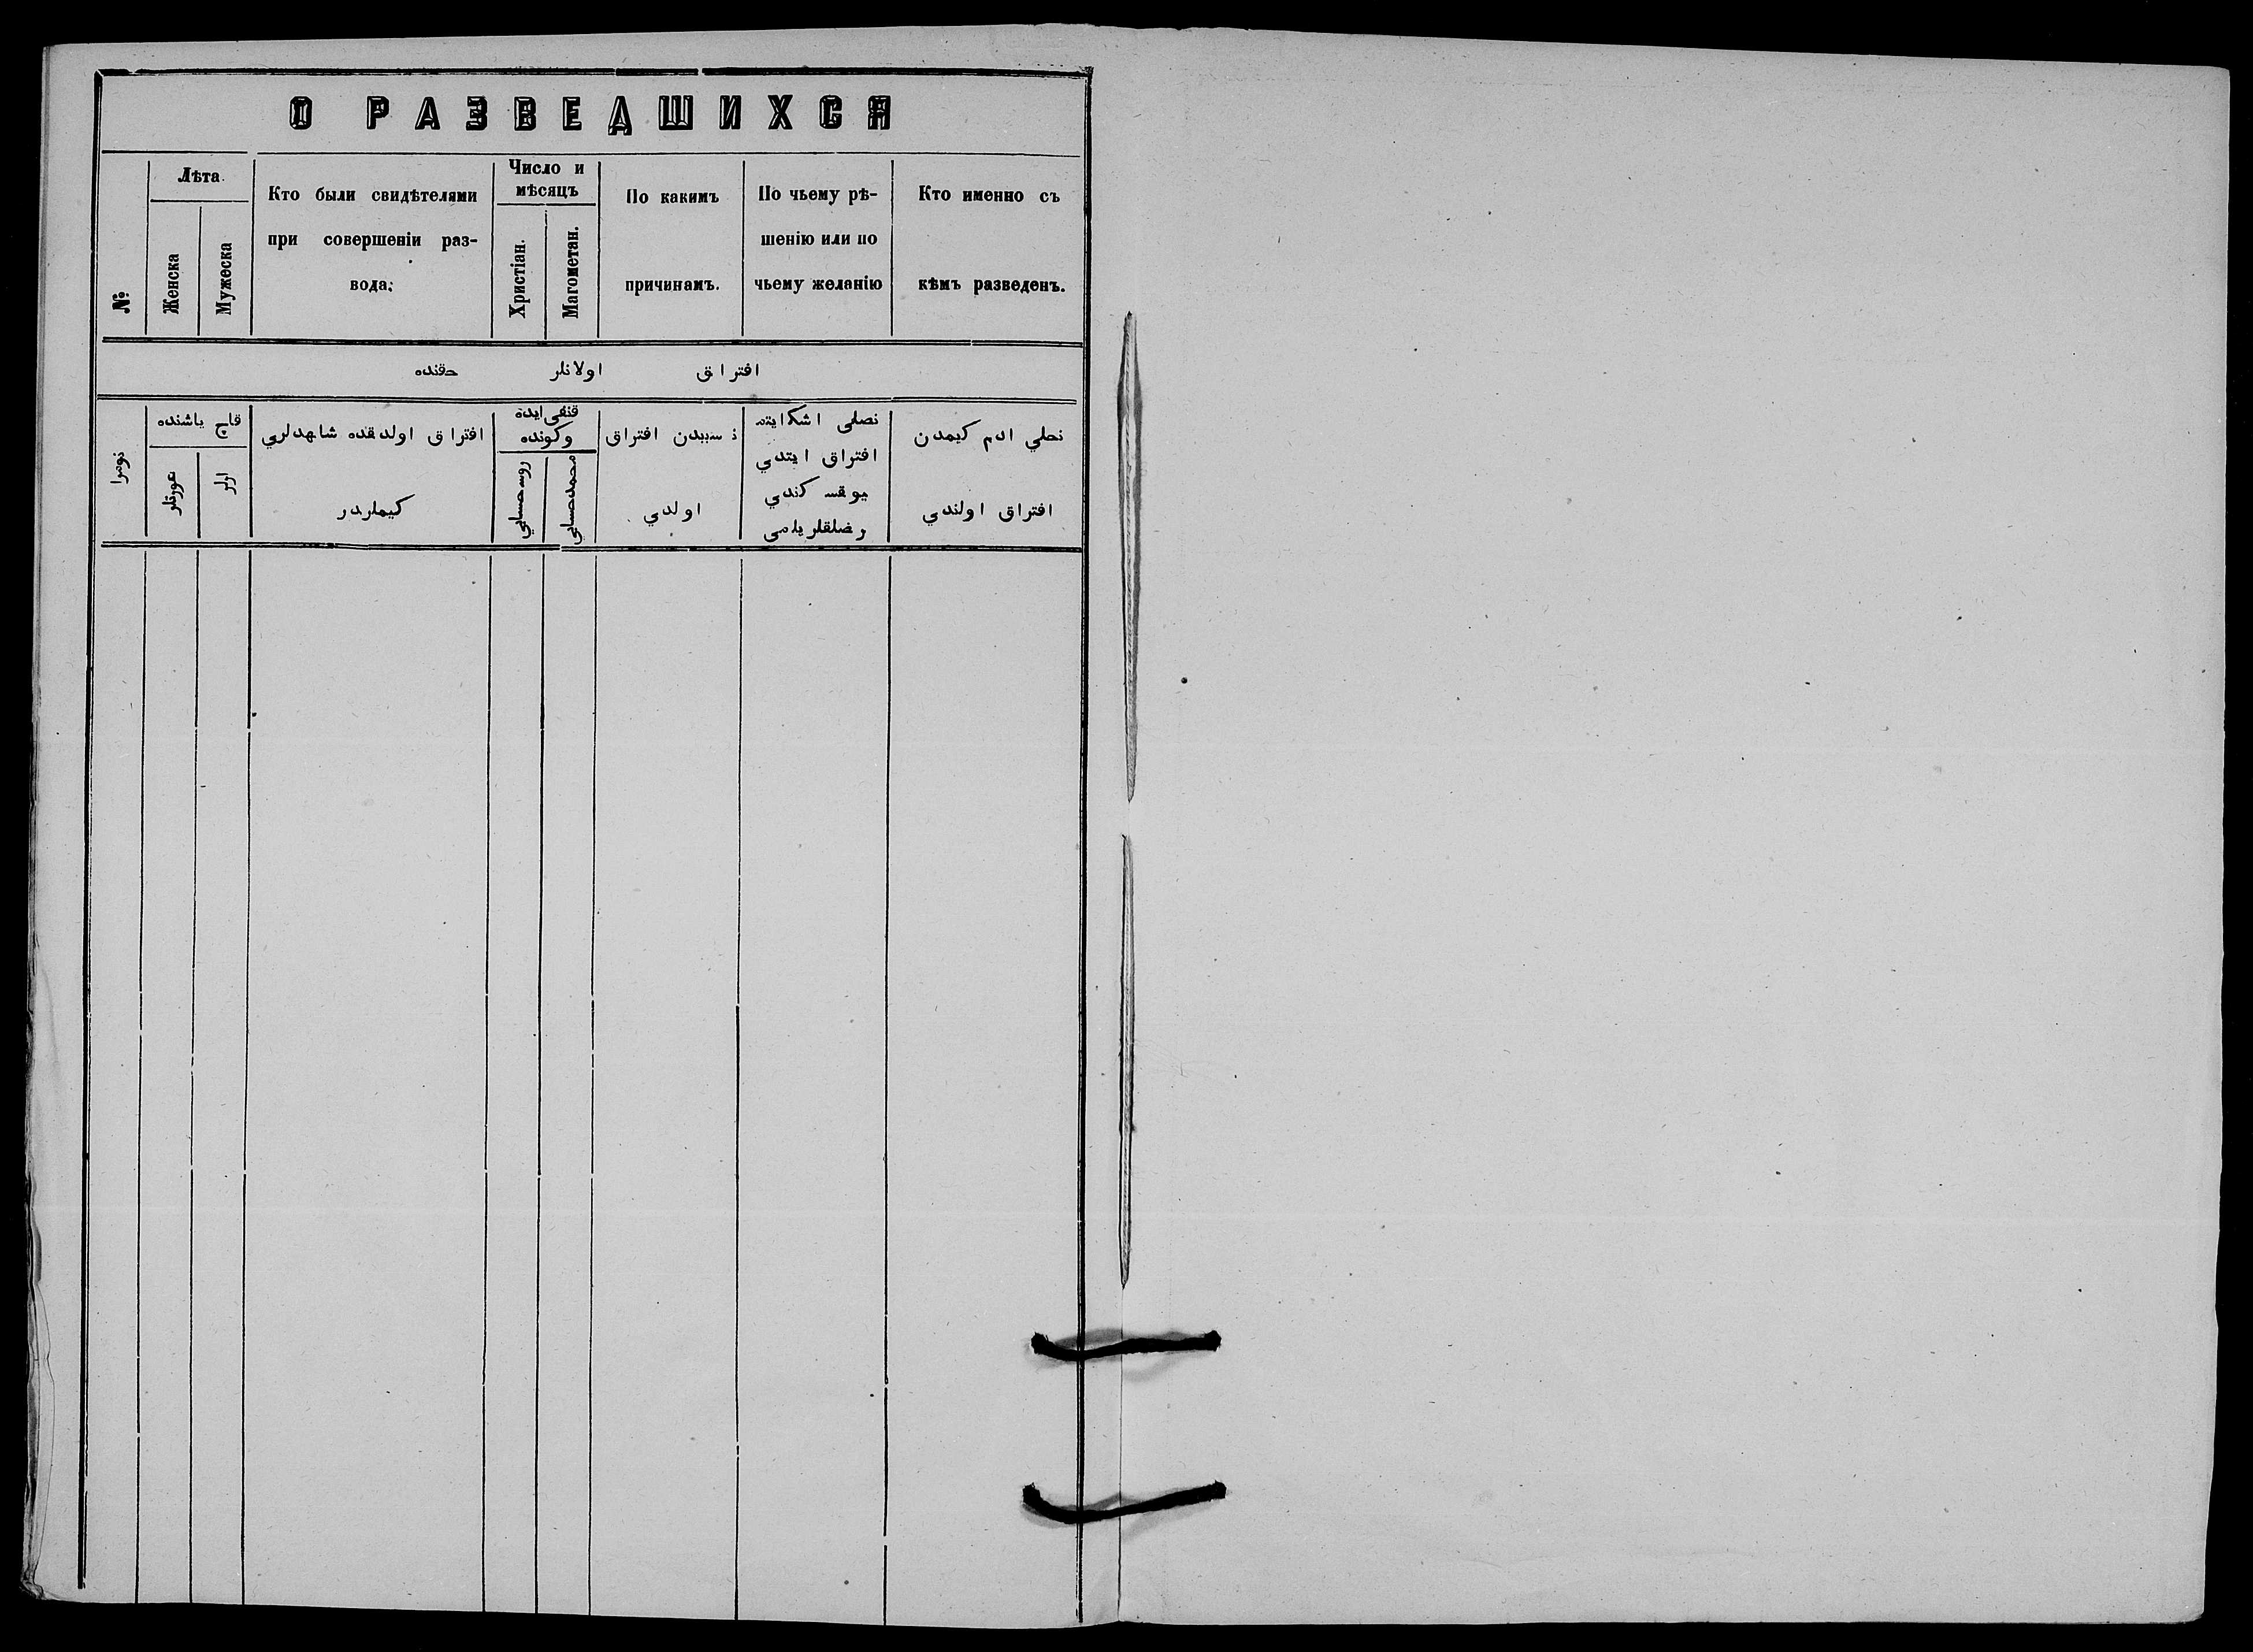 О РАЗВЕДШИХСЯ
№
Лѣта.
Женска
Мужеска
Кто были свидѣтелями
при совершеніи раз-
вода:
Число и
мѣсяцъ
Христіан.
Магометан.
По какимъ
причинамъ.
По чьему рѣ-
шенію или по
чьему желанію
Кто именно съ
кѣмъ разведенъ.
افتراق اولانلر حقنده
نومرا
قاچ ياشنده
عورتلر
ارلر
افتراق اولدقده شاهدلري
كيملردر
قنغى ايده
وكونده
روسه حسابي
محمد حسابي
نه سببدن افتراق
اولدي
افتراق ايتدي
يوقسه كندي
رضالقلريله مى
ادم كيمدن
افتراق اولندي